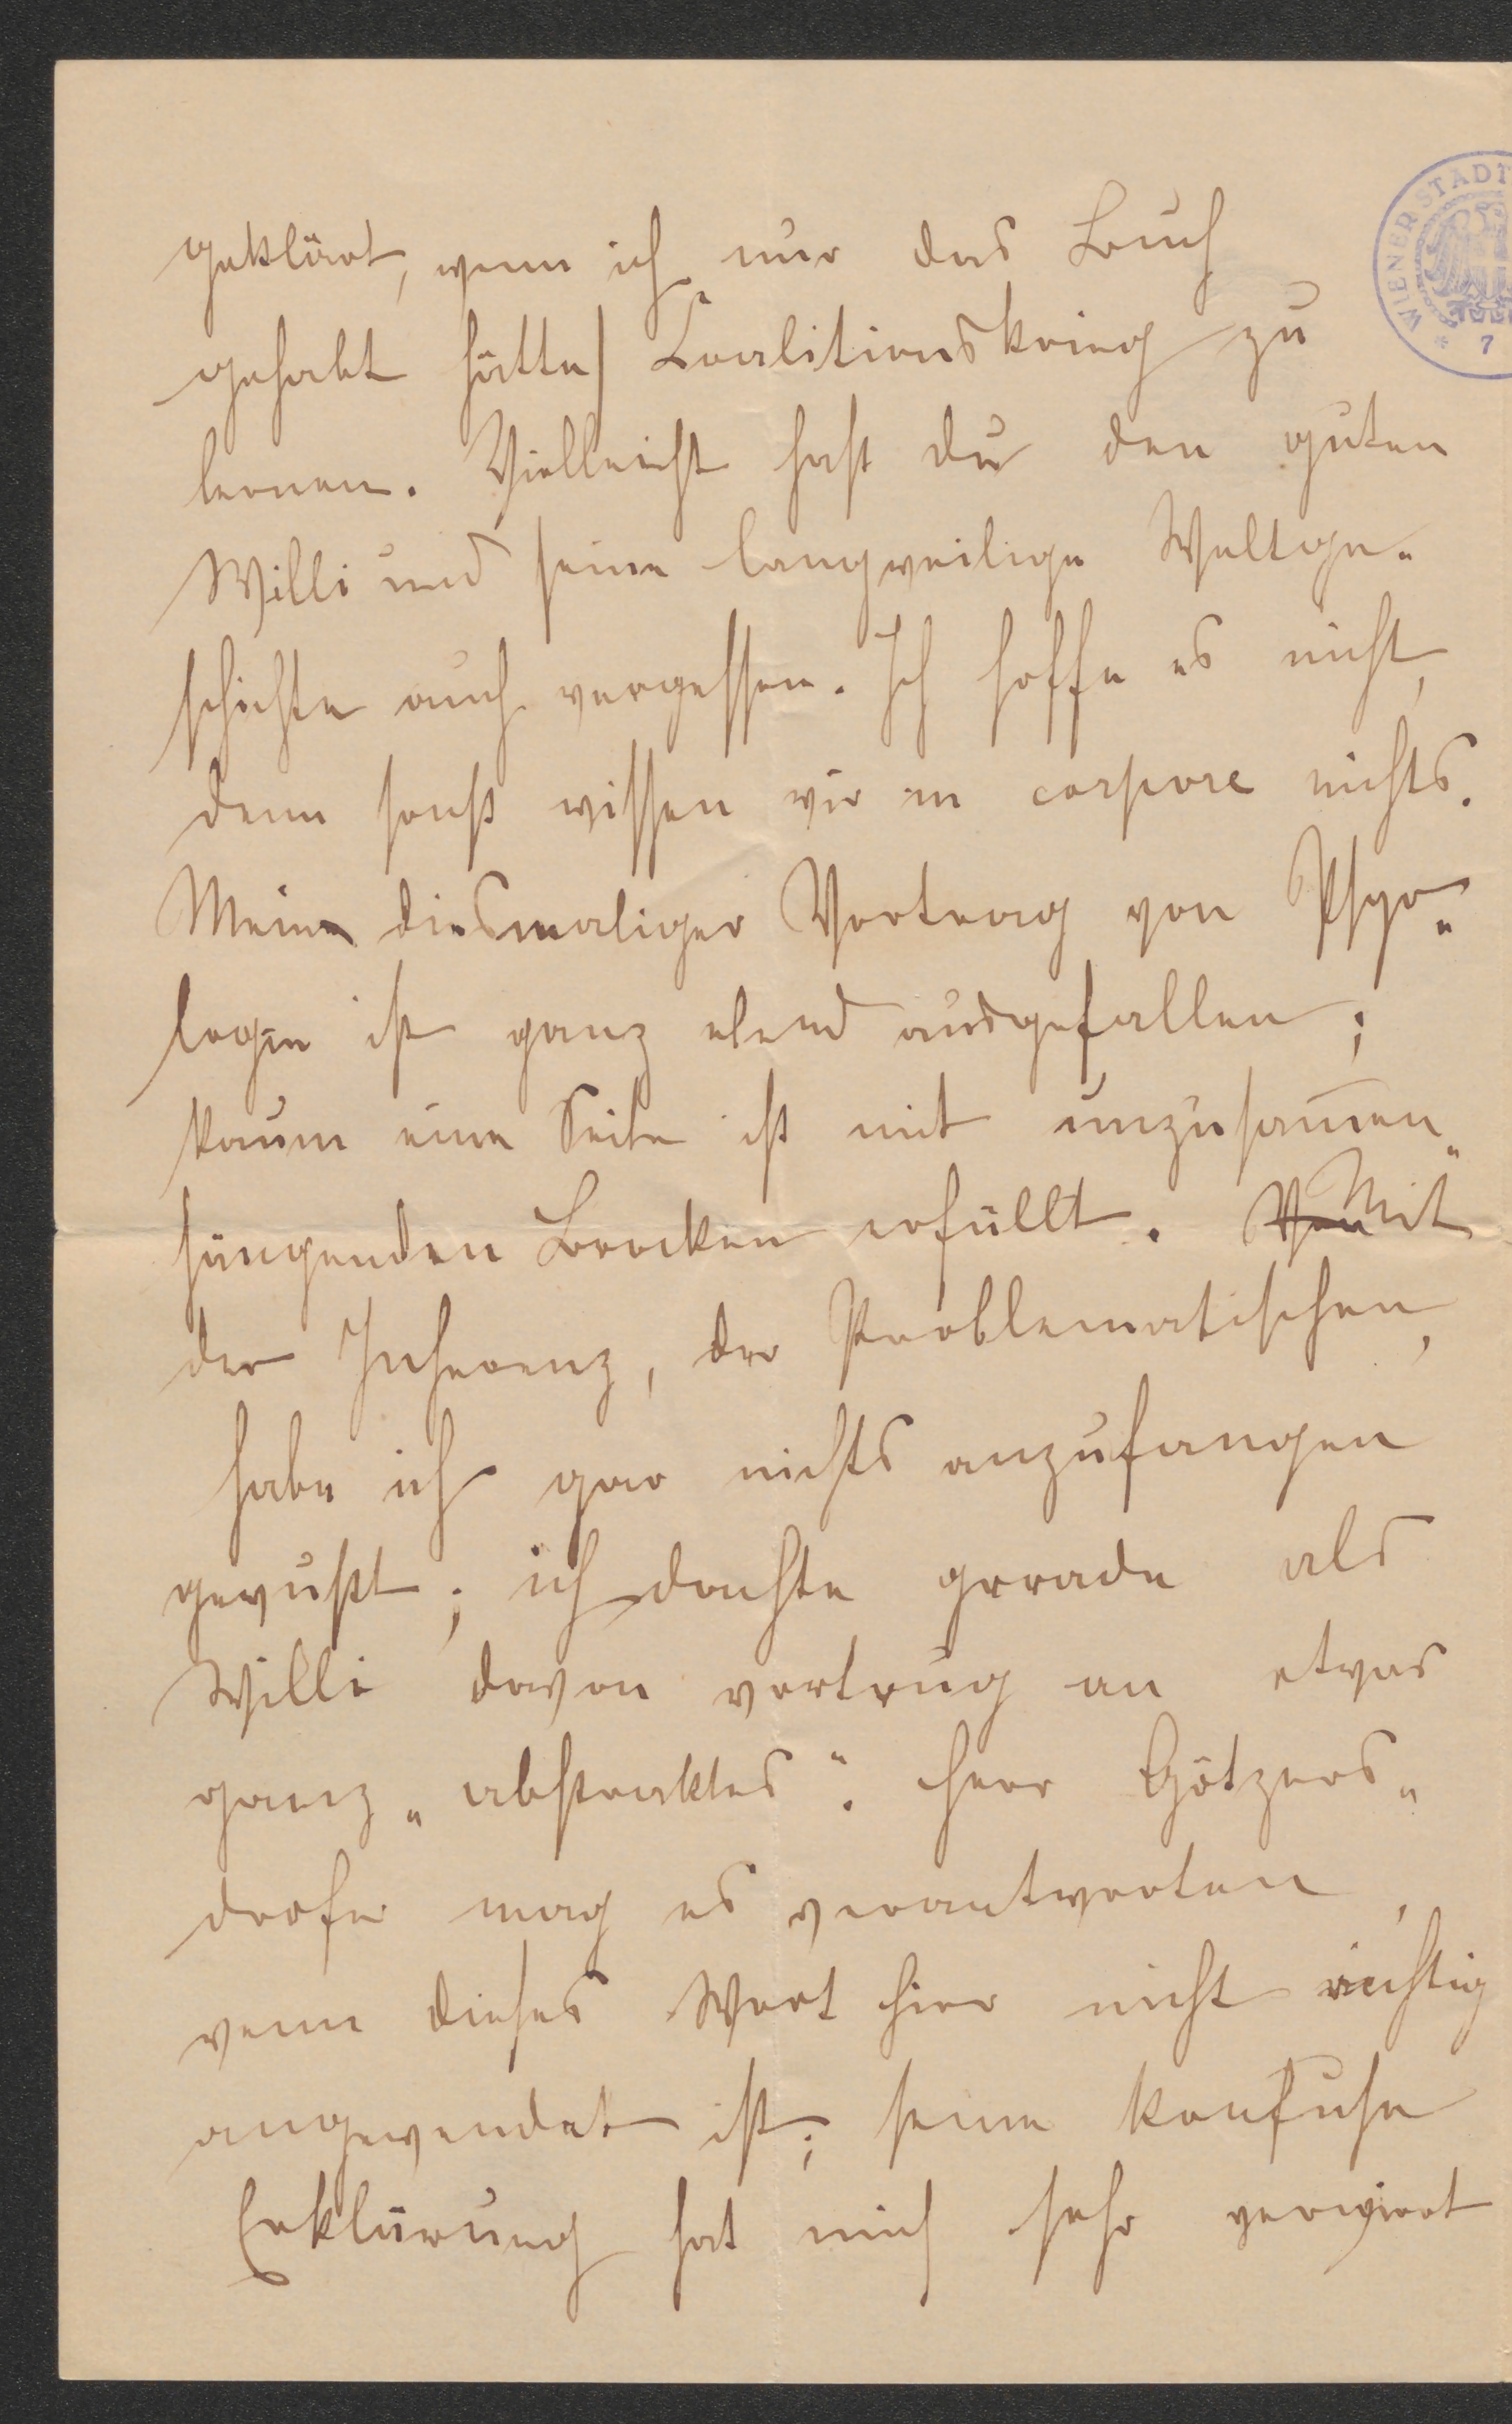 geklärt, wenn ich nur das Buch
gehabt hätte) Coalitionskrieg zu
lernen. Vielleicht hast du den guten
Willi und seine langweilige Weltge„
schichte auch vergessen. Ich hoffe es nicht,
denn sonst wissen wir in corpore nichts.
Mein diesmaliger Vortrag von Psyo„
logie ist ganz elend ausgefallen;
kaum eine Seite ist mit unzusam̅en„
hängenden Brocken erfüllt. Von Mit
der Inherenz, der Problematischen,
habe ich gar nichts anzufangen
gewußt; ich dachte gerade als
Willi davon vortrug an etwas
ganz „abstraktes“. Herr Götzers„
dorfer mag es verantworten,
wenn dieses Wort hier nicht richtig
angewendet ist; seine konfuse
Erklärung hat mich sehr verwirrt
WIENER STADT
* 7